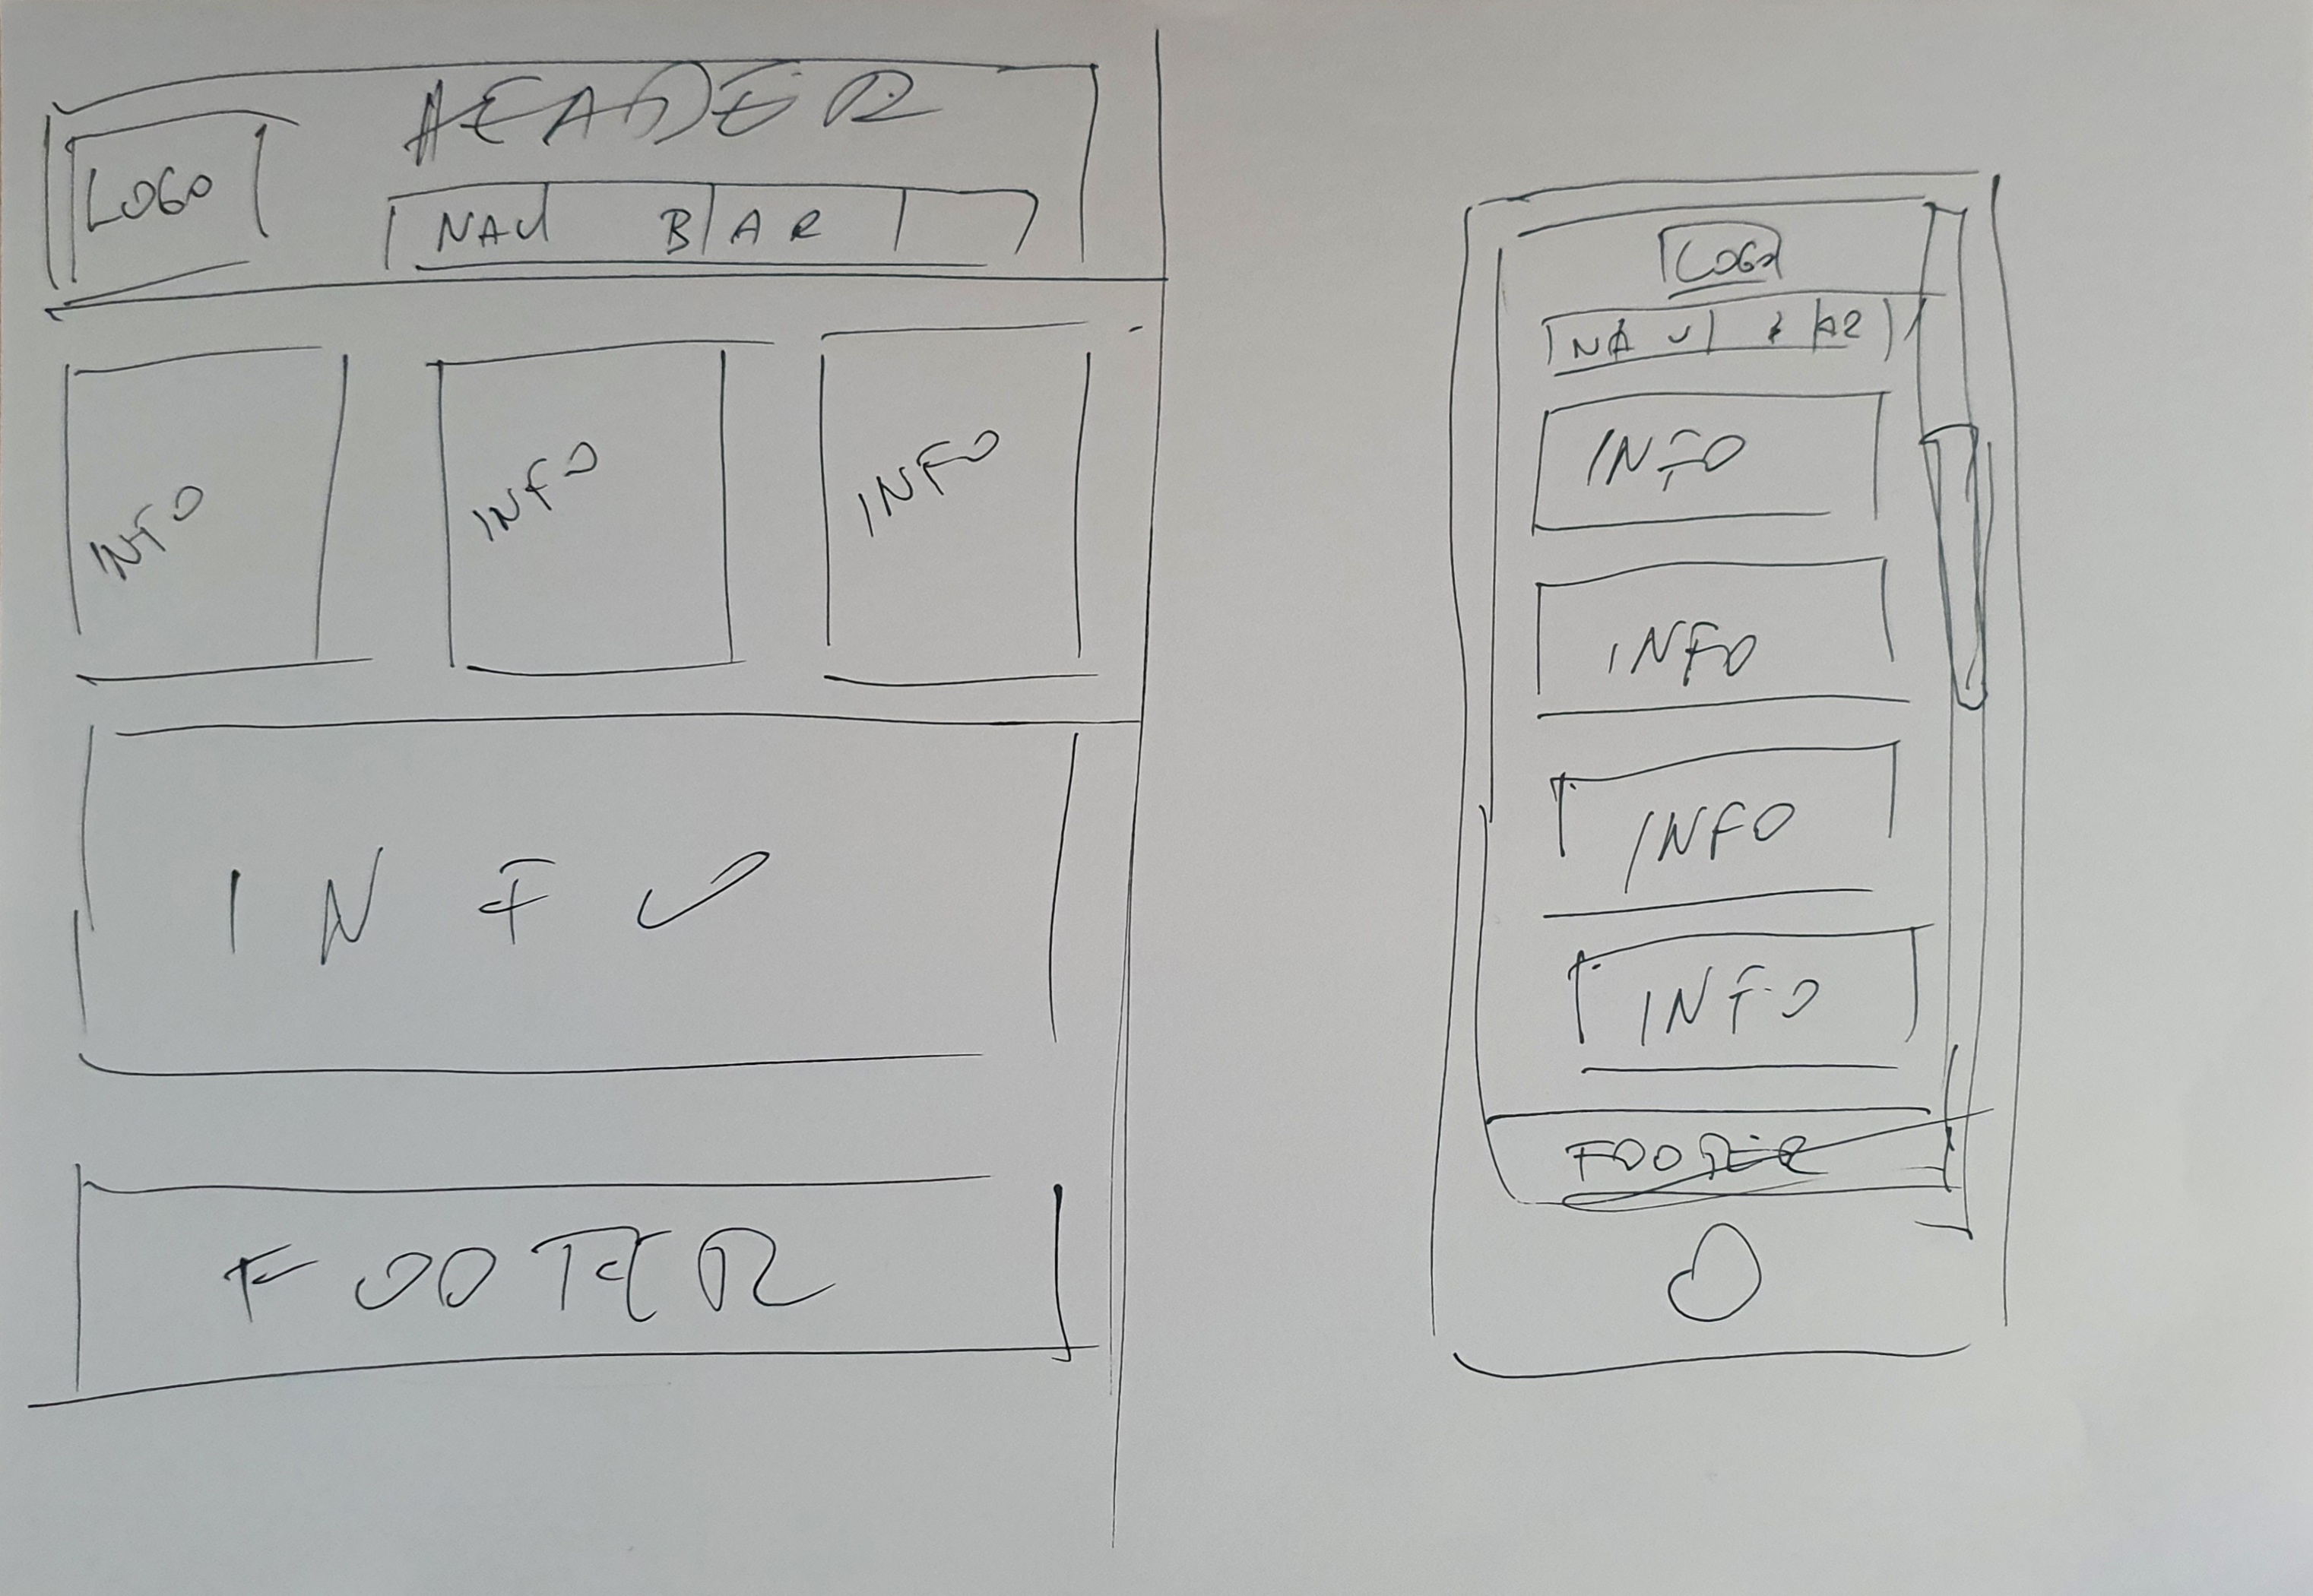 HEADER
LOGO
NAV BAR
INFO
INFO
INFO
INFO
FOOTER
LOGO
NAV BAR
INFO
INFO
INFO
INFO
FOOTER